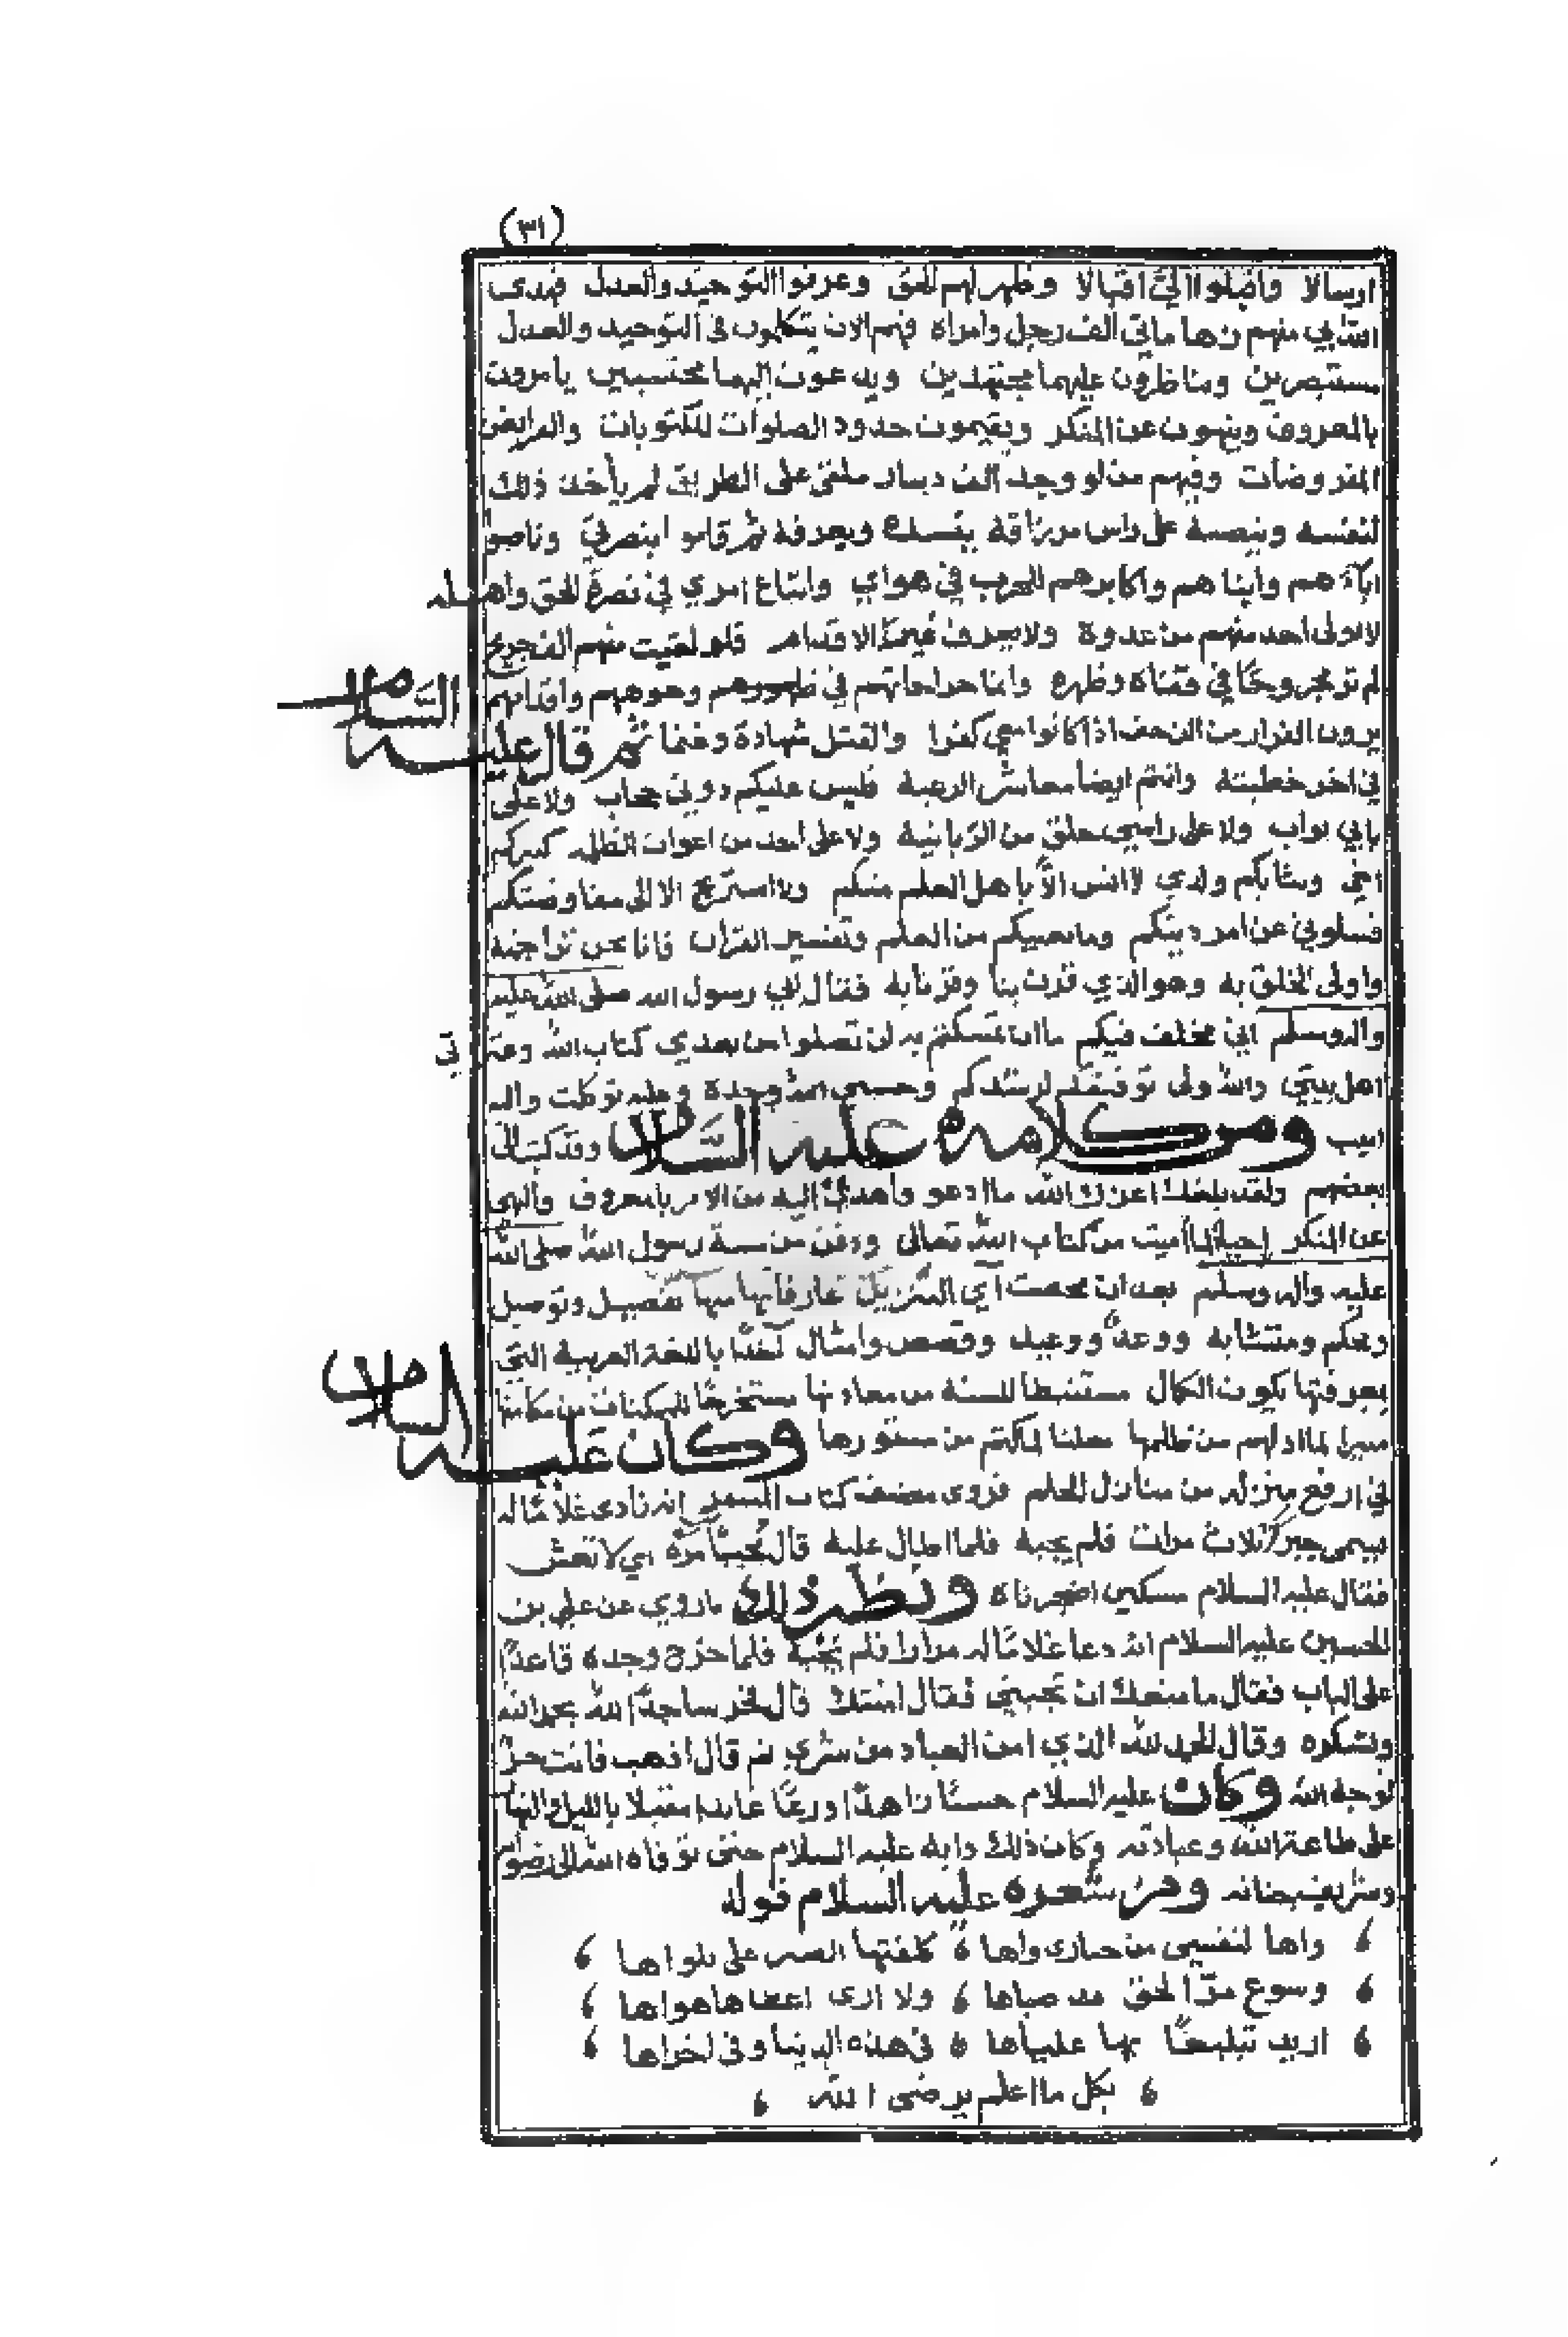 (٣١)
ارسالا واقبلوا اليَّ اقبالا وظهر لهم الحق وعرفوا التوحيد والعدل فهدى
الله بي منهم زها مائتي الف رجل وامراه فهم الان يتكلمون في التوحيد والعدل
مستبصرين ومناظرون عليهما مجتهدين ويدعون اليهما محتسبين يامرون
بالمعروف وينهون عن المنكر ويقيمون حدود الصلوات المكتوبات والفرايض
المفروضات وفيهم من لو وجد الف دينار ملقى على الطريق لم ياخذ ذلك
لنفسه وينصبه على راس مزراقه ينشده ويعرفه ثم قاموا بنصرتي وناصبوا
اباءهم وابناهم واكابرهم للحرب في هواي واتباع امري في نصرة الحق واهله
لا يولى احد منهم من عدوه ولا يعرف غير الاقدام فلو لقيت منهم الف جريح
لم تر مجروحًا في قفاه وظهره وانما جراحاتهم في نحورهم ووجوههم واقدامهم
يرون الفرار من الزحف اذا كانوا معي كفرا والقتل شهادة وغنما ثم قال عليه السلام
في اخر خطبته وانتم ايضا معاشر الرعية فليس عليكم دوني حجاب ولا على
بابي بواب ولا على راسي خلق من الزبانية ولا على احد من اعوان الظلمه كبيركم
اخي وشابكم ولدي لا انس الا باهل العلم منكم ولا استريح الا الى مفاوضتكم
فسلوني عن امر دينكم وما يعنيكم من العلم وتفسير القران فانا نحن تراجمته
واولى الخلق به وهو الذي قرن بنا وقرنا به فقال ابي رسول الله صلى الله عليه
واله وسلم اني مخلف فيكم ما ان تمسكتم به لن تضلوا من بعدي كتاب الله وعترتي
اهل بيتي والله ولي توفيقكم لرشدكم وحسبي الله وحده وعليه توكلت واليه
انيب ومن كلامه عليه السلام وقد كتب الى
بعضهم ولقد بلغك اعزك الله ما ادعو واهدي اليه من الامر بالمعروف والنهي
عن المنكر احياء لما اميت من كتاب الله تعالى ودفن من سنة رسول الله صلى الله
عليه واله وسلم بعد ان محصت اي التنزيل عارفا بها منها تفصيل وتوصيل
ومحكم ومتشابه ووعد ووعيد وقصص وامثال آخذًا باللغة العربية التي
بمعرفتها يكون الكمال مستنبطا للسنة من معادنها مستخرجًا للمكنات من مكامنها
منيرا لما ادلهم من ظلمها معلنا لما كتم من مستورها وكان عليه السلام
في ارفع منزله من منازل الحلم فروى مصنف كتاب المسفر انه نادى غلامًا له
يسمى جبير ثلاث مرات فلم يجبه فلما اطال عليه قال مجيبًا مره اي لا تعش
فقال عليه السلام مسكين اضجرناه ونظير ذلك ما روي عن علي بن
الحسين عليه السلام انه دعا غلامًا له مرارا فلم يُجبه فلما خرج وجده قاعدًا
على الباب فقال ما منعك ان تجيبني فقال امنتك قال فخر ساجدًا لله بحمد الله
وشكره وقال الحمد لله الذي امن العباد من شري ثم قال اذهب فانت حرٌ
لوجه الله وكان عليه السلام حسنًا زاهدًا ورعًا عابدا مقبلا بالليل والنهار
على طاعة الله وعبادته وكان ذلك دابه عليه السلام حتى توفاه الله الى رضوانه
وشريف جنانه ومن شعره عليه السلام قوله
واها لنفسي من حياري واها كلفتها الصبر على بلواها
وسوغ مرّ الحق مذ صباها ولا ارى اعطاها هواها
اريد تبليغًا بها علياها في هذه الدنيا وفي اخراها
بكل ما اعلم يرضى الله